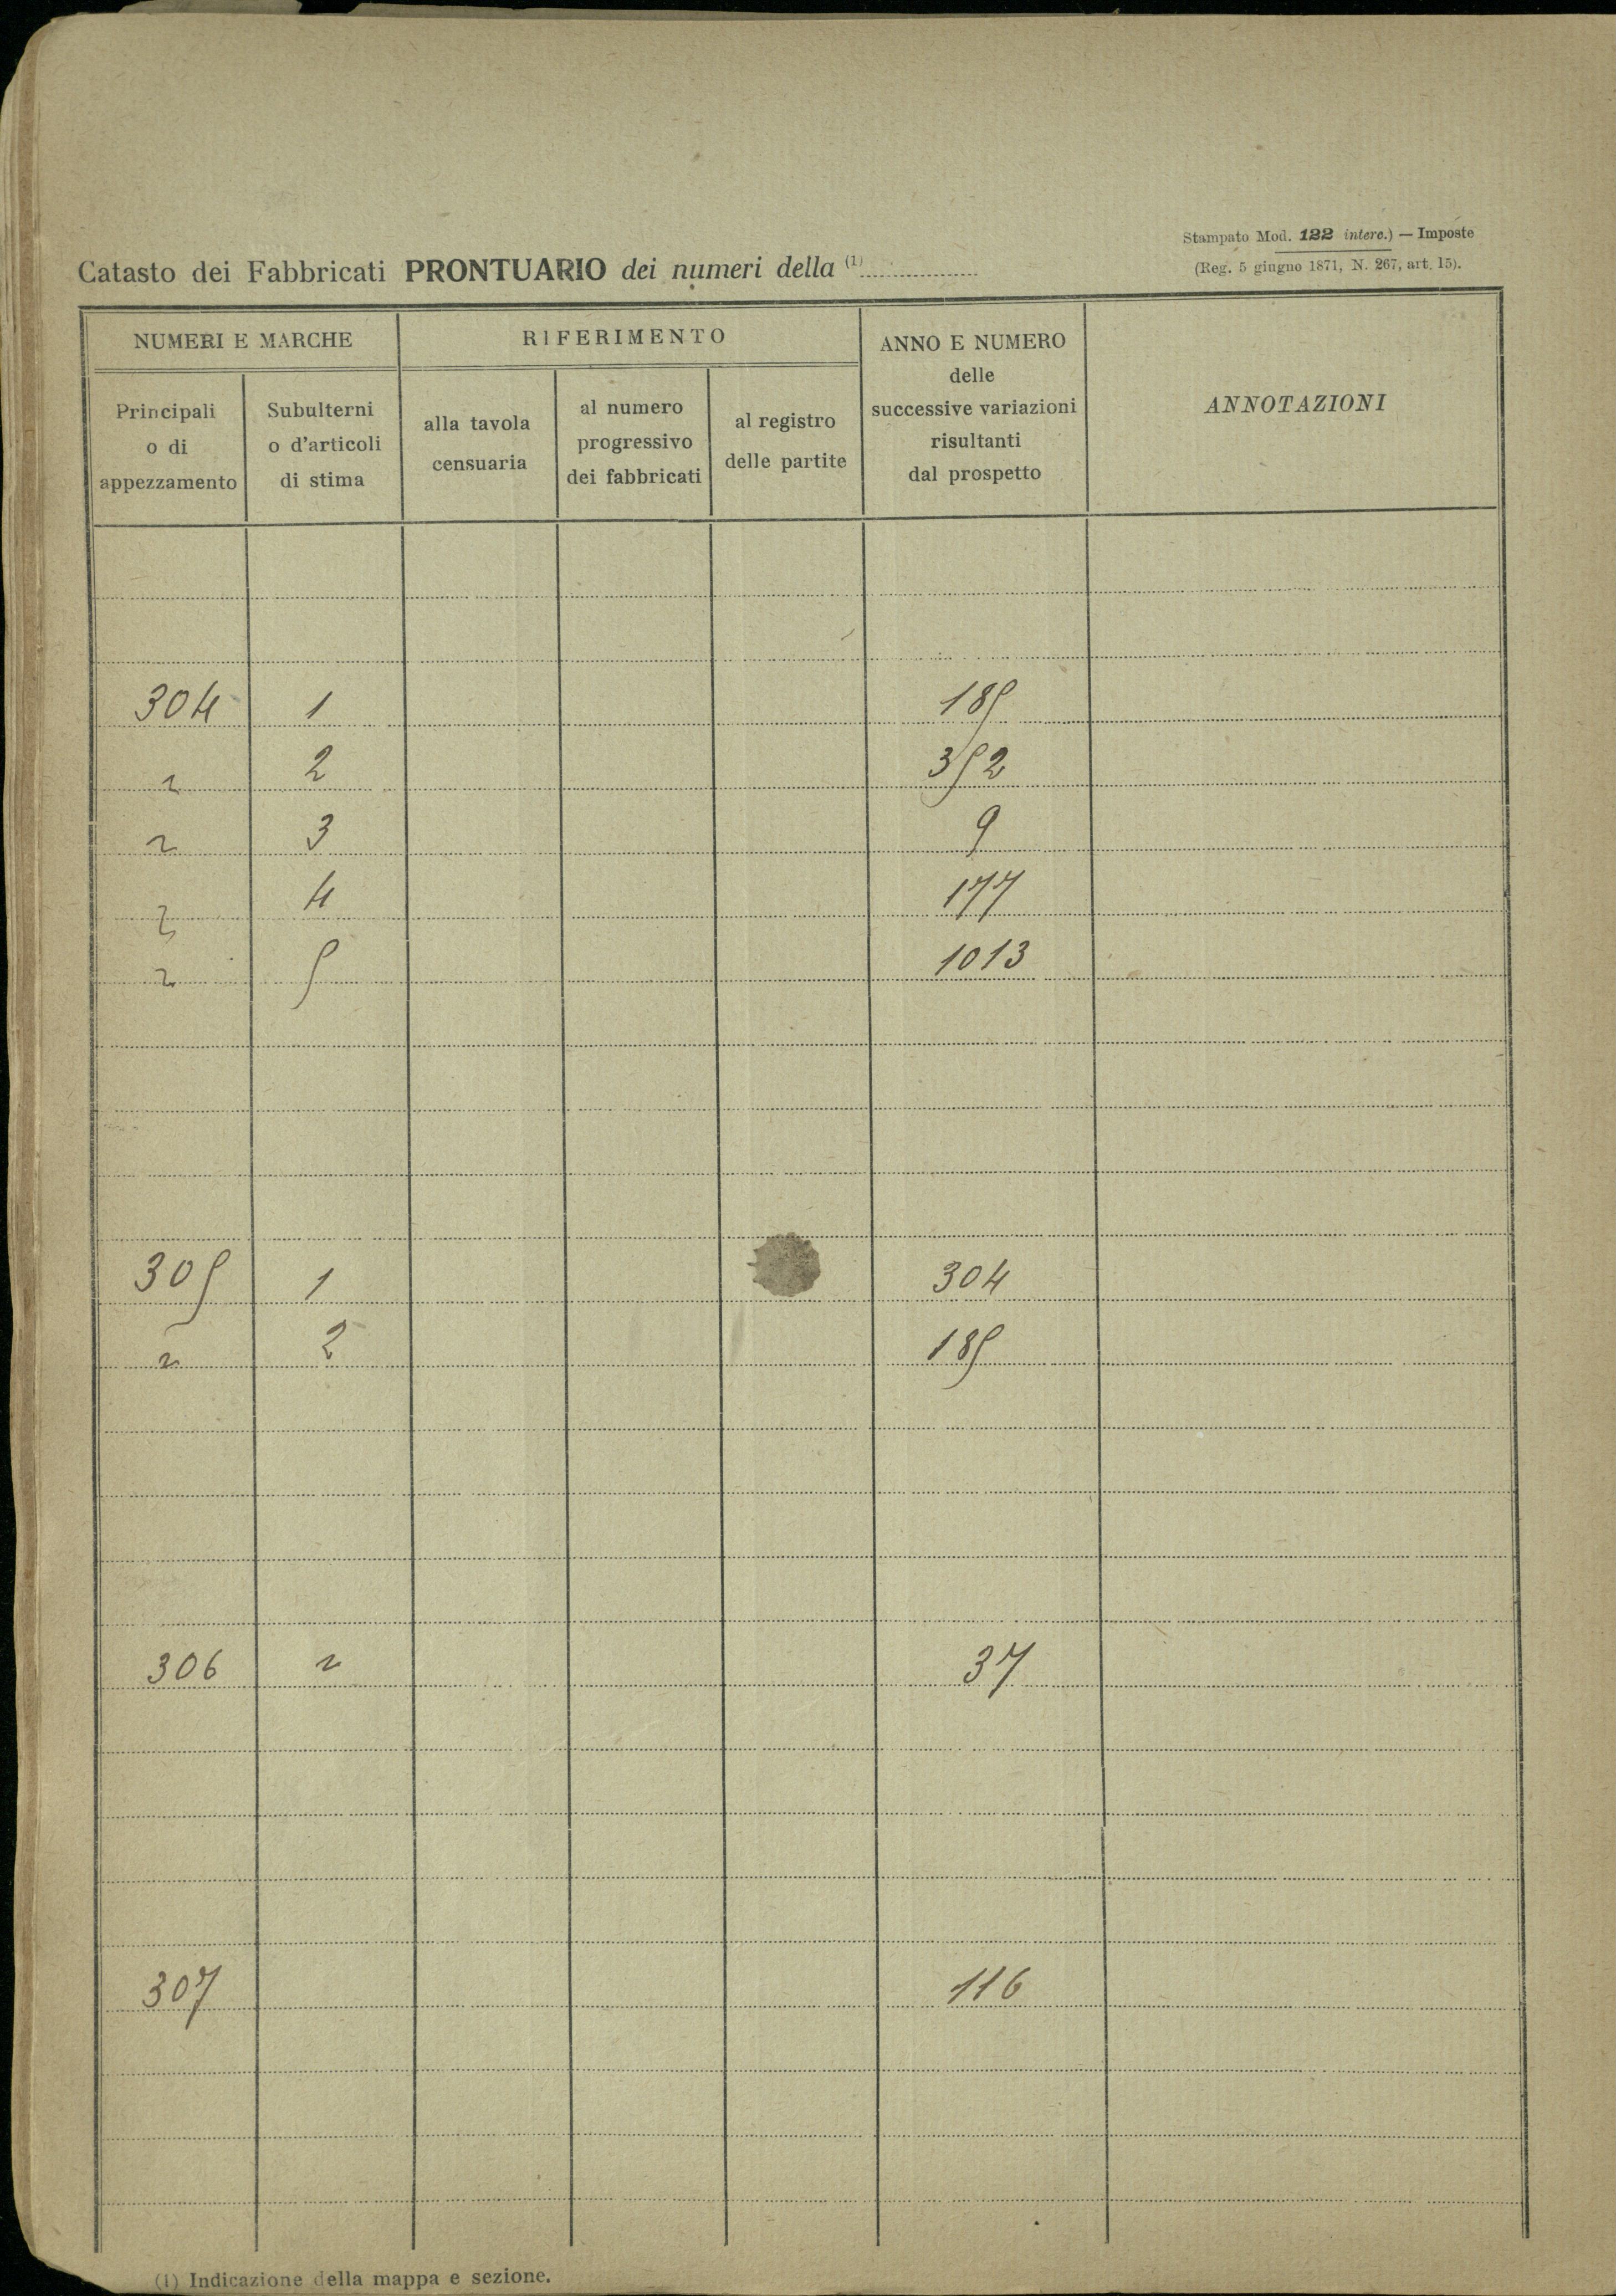 Stampato Mod. 122 interc.) — Imposte
(Reg. 5 giugno 1871, N. 267, art. 15).
Catasto dei Fabbricati PRONTUARIO dei numeri della (1)
NUMERI E MARCHE
RIFERIMENTO
ANNO E NUMERO
delle
successive variazioni
risultanti
dal prospetto
ANNOTAZIONI
Principali
o di
appezzamento
Subulterni
o d'articoli
di stima
alla tavola
censuaria
al numero
progressivo
dei fabbricati
al registro
delle partite
304 1 185
" 2 352
" 3 9
" 4 177
" 5 1013
305 1 304
" 2 185
306 " 37
307 116
(1) Indicazione della mappa e sezione.